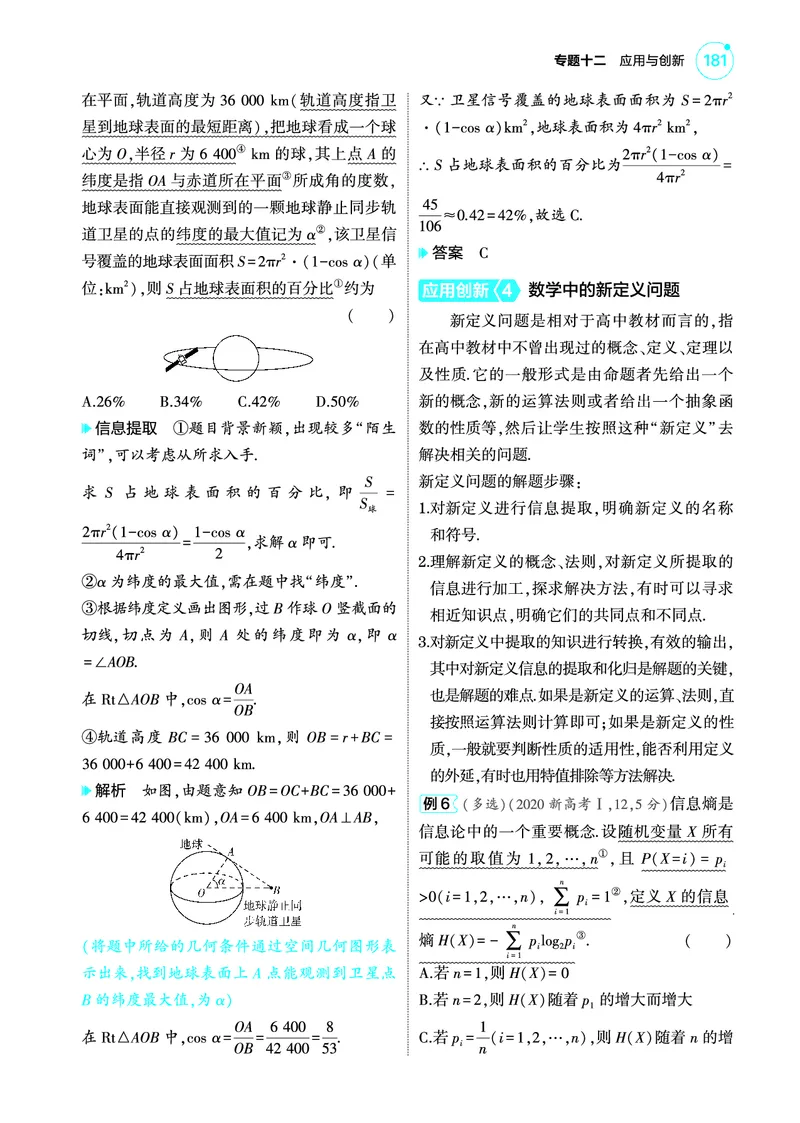 专题十二 应用与创新 181
在平面,轨道高度为 36 000 km(轨道高度指卫
星到地球表面的最短距离),把地球看成一个球
心为 O,半径 r 为 6 400④ km 的球,其上点 A 的
纬度是指 OA 与赤道所在平面③所成角的度数,
地球表面能直接观测到的一颗地球静止同步轨
道卫星的点的纬度的最大值记为 α②,该卫星信
号覆盖的地球表面面积 S=2πr²·(1-cos α)(单
位:km²),则 S 占地球表面积的百分比①约为
( )
A.26% B.34% C.42% D.50%
信息提取 ①题目背景新颖,出现较多“陌生
词”,可以考虑从所求入手.
求 S 占地球表面积的百分比,即 S/S球 =
2πr²(1-cos α)/4πr² = (1-cos α)/2 ,求解 α 即可.
②α 为纬度的最大值,需在题中找“纬度”.
③根据纬度定义画出图形,过 B 作球 O 竖截面的
切线,切点为 A,则 A 处的纬度即为 α,即 α
=∠AOB.
在 Rt△AOB 中,cos α= OA/OB.
④轨道高度 BC = 36 000 km,则 OB = r+BC =
36 000+6 400=42 400 km.
解析 如图,由题意知 OB=OC+BC=36 000+
6 400=42 400(km),OA=6 400 km,OA⊥AB,
地球
A
α
O
B
地球静止同
步轨道卫星
(将题中所给的几何条件通过空间几何图形表
示出来,找到地球表面上 A 点能观测到卫星点
B 的纬度最大值,为 α)
在 Rt△AOB 中,cos α= OA/OB = 6 400/42 400 = 8/53.
又∵ 卫星信号覆盖的地球表面面积为 S=2πr²
·(1-cos α)km²,地球表面积为 4πr² km²,
∴ S 占地球表面积的百分比为 2πr²(1-cos α)/4πr² =
45/106 ≈0.42=42%,故选 C.
答案 C
应用创新 4 数学中的新定义问题
新定义问题是相对于高中教材而言的,指
在高中教材中不曾出现过的概念、定义、定理以
及性质.它的一般形式是由命题者先给出一个
新的概念,新的运算法则或者给出一个抽象函
数的性质等,然后让学生按照这种“新定义”去
解决相关的问题.
新定义问题的解题步骤:
1.对新定义进行信息提取,明确新定义的名称
和符号.
2.理解新定义的概念、法则,对新定义所提取的
信息进行加工,探求解决方法,有时可以寻求
相近知识点,明确它们的共同点和不同点.
3.对新定义中提取的知识进行转换,有效的输出,
其中对新定义信息的提取和化归是解题的关键,
也是解题的难点.如果是新定义的运算、法则,直
接按照运算法则计算即可;如果是新定义的性
质,一般就要判断性质的适用性,能否利用定义
的外延,有时也用特值排除等方法解决.
例 6 (多选)(2020 新高考Ⅰ,12,5 分)信息熵是
信息论中的一个重要概念.设随机变量 X 所有
可能的取值为 1,2,…,n①,且 P(X=i) = pᵢ
>0(i=1,2,…,n), ∑(i=1..n) pᵢ=1②,定义 X 的信息
熵 H(X)=- ∑(i=1..n) pᵢlog₂pᵢ③. ( )
A.若 n=1,则 H(X)=0
B.若 n=2,则 H(X)随着 p₁ 的增大而增大
C.若 pᵢ= 1/n (i=1,2,…,n),则 H(X)随着 n 的增